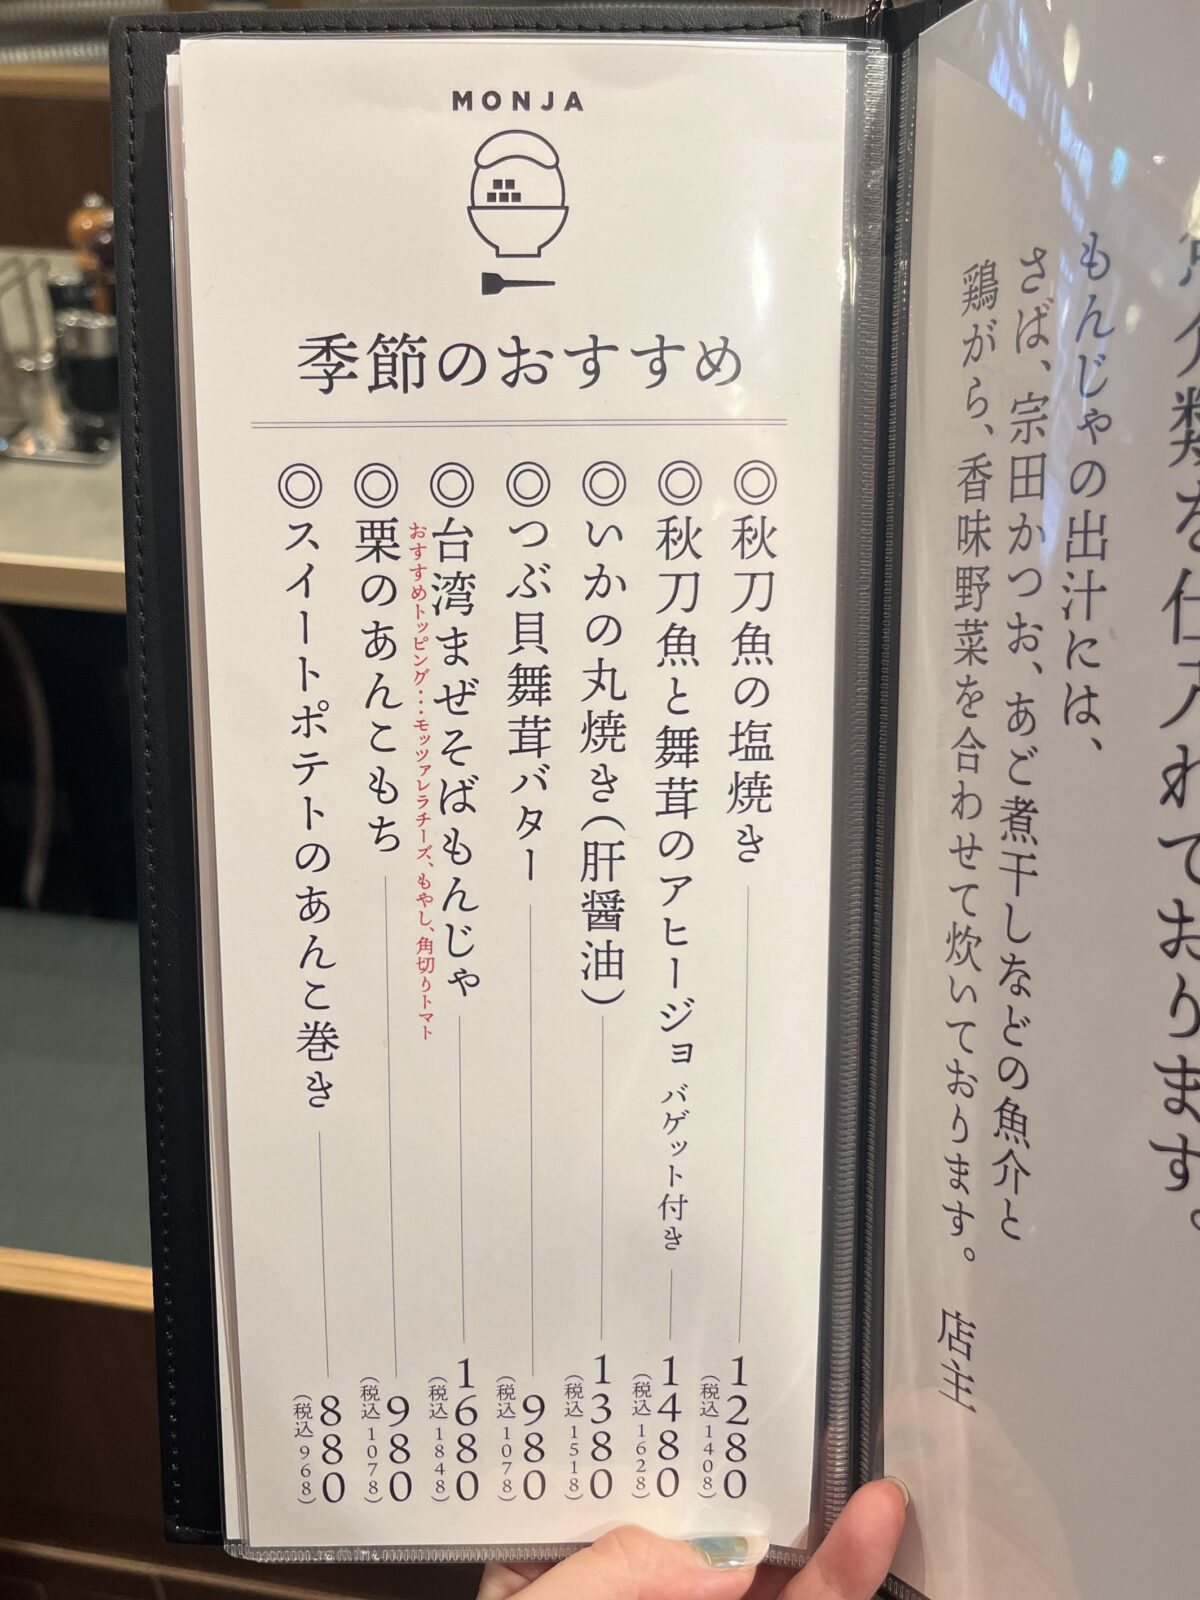 MONJA
季節のおすすめ
◎秋刀魚の塩焼き 1280
(税込1408)
◎秋刀魚と舞茸のアヒージョ バゲット付き 1480
(税込1628)
◎いかの丸焼き(肝醤油) 1380
(税込1518)
◎つぶ貝舞茸バター 980
(税込1078)
◎台湾まぜそばもんじゃ 1680
(税込1848)
おすすめトッピング・・・モッツァレラチーズ、もやし、角切りトマト
◎栗のあんこもち 980
(税込1078)
◎スイートポテトのあんこ巻き 880
(税込968)
類を仕入れております。
もんじゃの出汁には、
さば、宗田かつお、あご煮干しなどの魚介と
鶏がら、香味野菜を合わせて炊いております。
店主